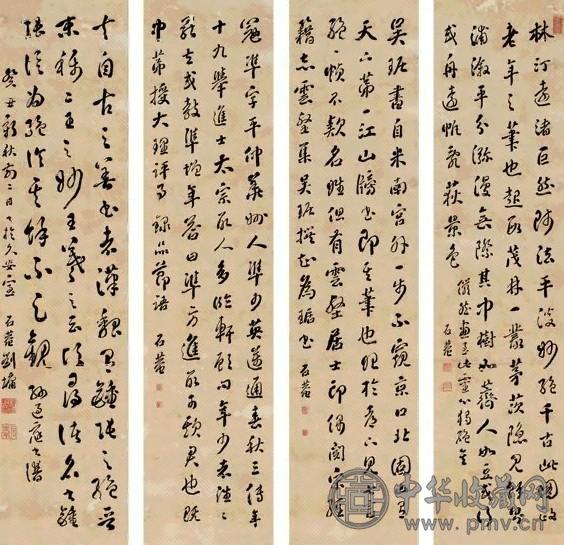 林汀遠渚巨然師法平淡妙絕千古此圖故
老年之筆也起段茂林一叢茅茨隱見
平分瀰漫無際其中樹如薺人如豆或行
或舟遠帷亂荻景色
石菴
吳琚書自米南宮外一步不窺京口北固有
天下第一江山牓書即其筆也
絕一幀不款名姓但有雲壑居士印偶閱宋經
籍志雲壑集吳琚撰知為琚書 石菴
寇準字平仲華州人準少英邁通春秋三傳年
十九舉進士太宗取人多臨軒顧問年少者往〻
罷去或教準增年答曰準方進取可欺君也既
中第授大理評事 錄品節語 石菴
夫自古之善書者漢魏有鍾張之絕晉
末稱二王之妙王羲之云頃尋諸名書鍾
張信為絕倫其餘不足觀 孫過庭書譜
癸丑新秋前二日書於久安室 石菴劉墉
中华收藏网
www.pmv.cn